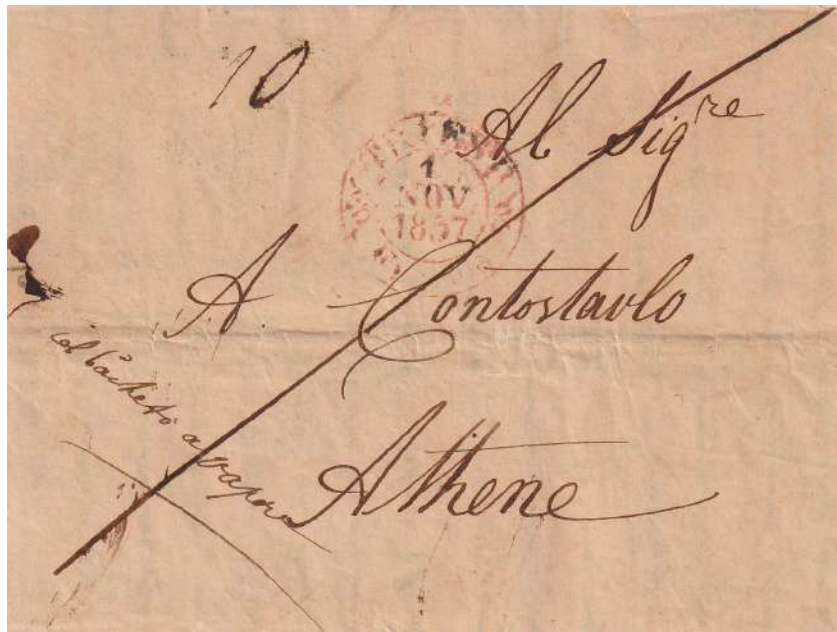 10
Al Sig^re
1
NOV
1837
A. Contostavlo
col Pacheto a vapore
Athene